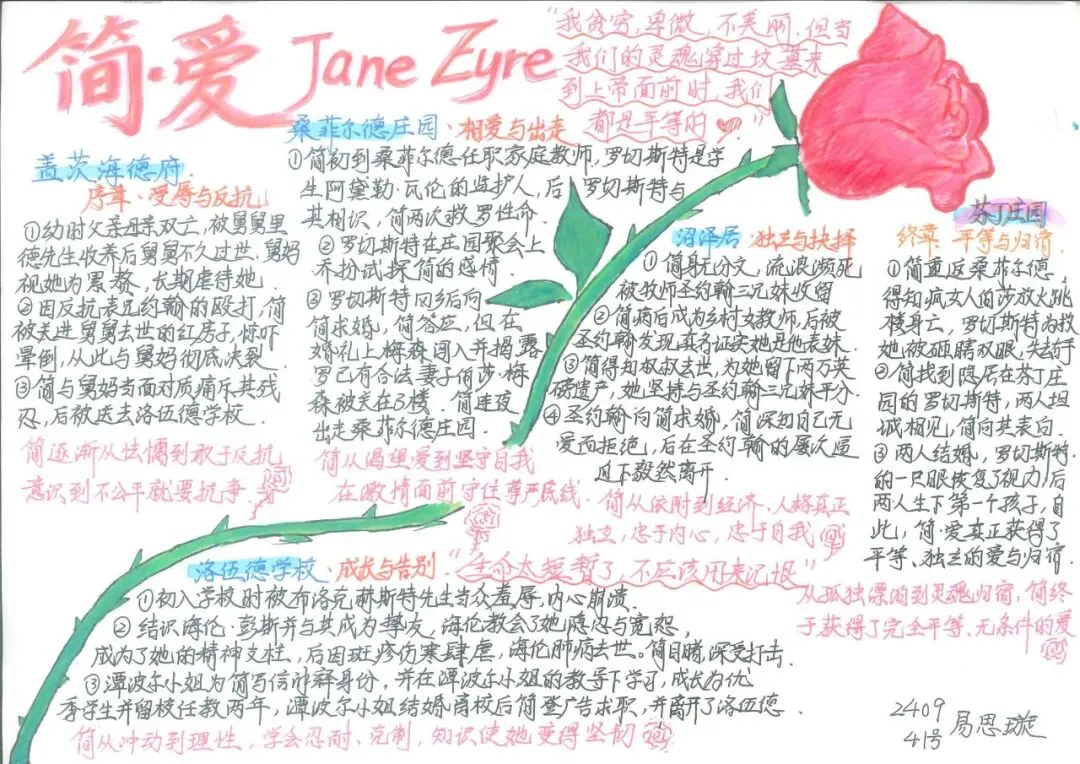 简·爱 Jane Zyre
"我贫穷,卑微,不美丽.但当
我们的灵魂穿过坟墓来
到上帝面前时,我们
都是平等的"
盖茨海德府.
序章·受辱与反抗
①幼时父亲母亲双亡,被舅舅里
德先生收养后舅舅不久过世.舅妈
视她为累赘,长期虐待她.
②因反抗表兄约翰的殴打,简
被关进舅舅去世的红房子,惊吓
晕倒,从此与舅妈彻底决裂.
③简与舅妈当面对质痛斥其残
忍,后被送去洛伍德学校.
简逐渐从怯懦到敢于反抗
意识到不公平就要抗争.
桑菲尔德庄园·相爱与出走
①简初到桑菲尔德任职家庭教师,罗切斯特是学
生阿黛勒·瓦伦的监护人,后 罗切斯特与
其相识,简两次救罗性命.
②罗切斯特在庄园聚会上
乔扮试探简的感情.
③罗切斯特回乡后向
简求婚,简答应,但在
婚礼上梅森闯入并揭露
罗已有合法妻子伯莎·梅
森被关在3楼.简连夜
出走桑菲尔德庄园.
简从渴望爱到坚守自我
在激情面前守住尊严底线.
沼泽居·独立与抉择
①简身无分文,流浪濒死
被牧师圣约翰三兄妹收留
②简病后成为乡村女教师,后被
圣约翰发现真名证实她是他表妹.
③简得知叔叔去世,为她留下两万英
磅遗产,她坚持与圣约翰三兄妹平分.
④圣约翰向简求婚,简深知自己无
爱而拒绝,后在圣约翰的屡次逼
迫下毅然离开.
简从依附到经济、人格真正
独立,忠于内心,忠于自我
芬丁庄园
终章·平等与归宿.
①简重返桑菲尔德,
得知疯女人伯莎放火跳
楼身亡,罗切斯特为救
她,被砸瞎双眼,失去手
②简找到隐居在芬丁庄
园的罗切斯特,两人坦
诚相见,简向其表白.
③两人结婚,罗切斯特
的一只眼恢复了视力,后
两人生下第一个孩子,自
此,简·爱真正获得了
平等、独立的爱与归宿.
从孤独漂泊到灵魂归宿,简终
于获得了完全平等、无条件的爱
洛伍德学校·成长与告别 "生命太短暂了,不应该用来记恨"
①初入学校时被布洛克赫斯特先生当众羞辱,内心崩溃.
②结识海伦·彭斯并与其成为挚友,海伦教会了她隐忍与宽恕,
成为了她的精神支柱,后因斑疹伤寒肆虐,海伦肺病去世.简目睹,深受打击.
③潭波尔小姐为简写信冲辩身份,并在潭波尔小姐的教导下学习,成长为优
季学生并留校任教两年,潭波尔小姐结婚离校后简登广告求职,并离开了洛伍德.
简从冲动到理性,学会忍耐、克制,知识使她变得坚韧
2409
41号 易思璇